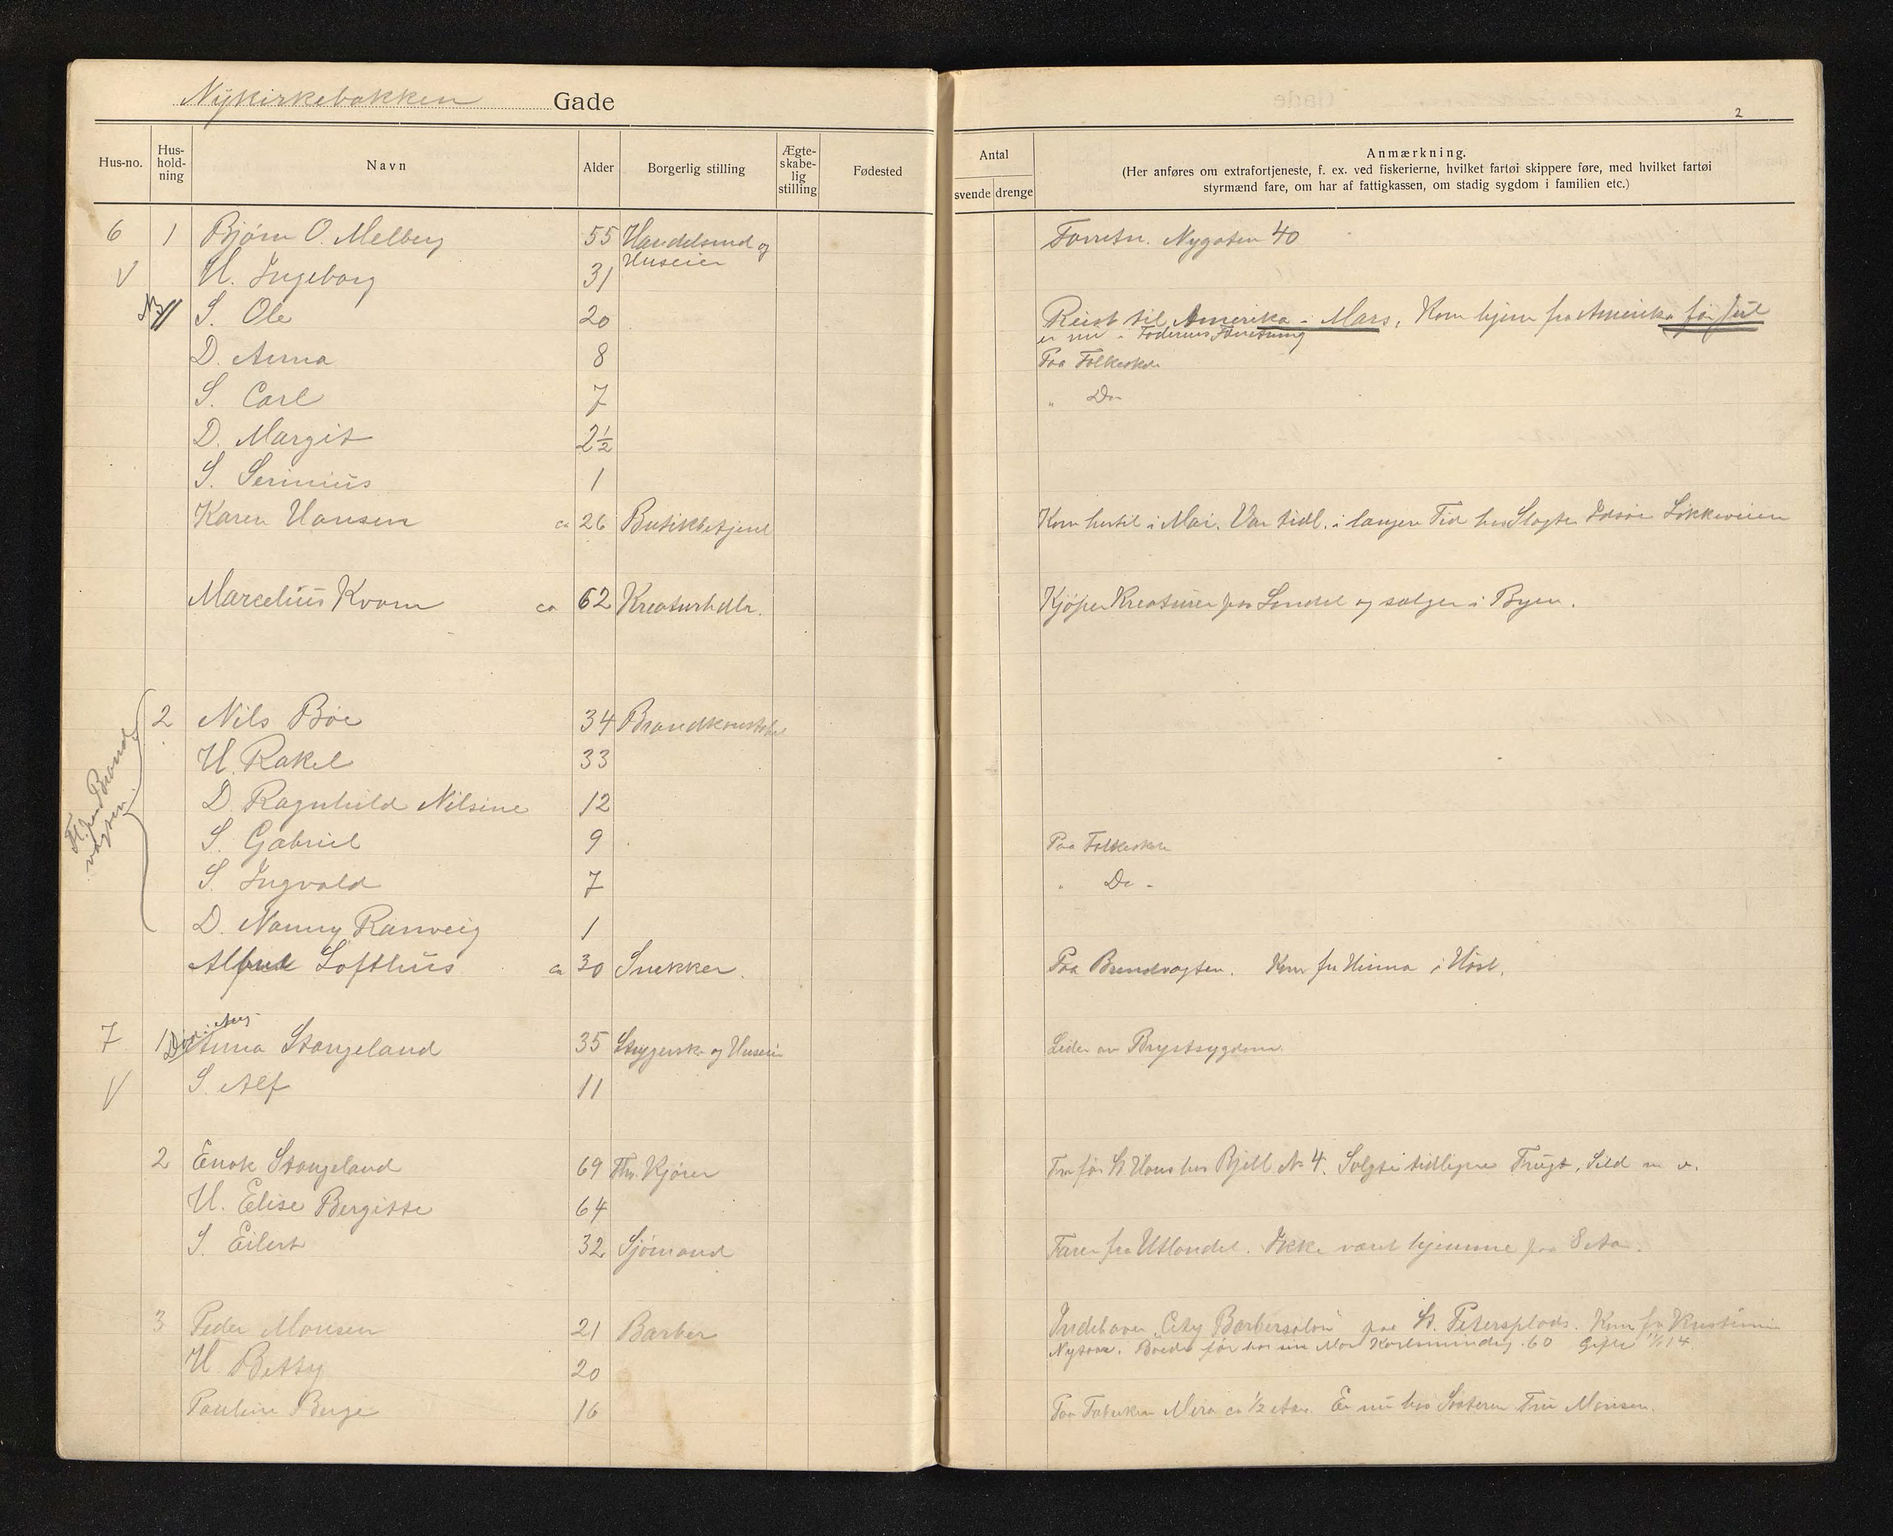 Nykirkebakken Gade
2
Hus-no. Hus-hold-ning Navn Alder Borgerlig stilling Ægte-skabe-lig stilling Fødested Antal svende drenge Anmærkning.
(Her anføres om extrafortjeneste, f. ex. ved fiskerierne, hvilket fartøi skippere føre, med hvilket fartøi
styrmænd fare, om har af fattigkassen, om stadig sygdom i familien etc.)
6 1 Bjørn O. Melberg 55 Handelsmd og Huseier Forretn. Nygaten 40
V H. Ingeborg 31
S. Ole 20 Reist til Amerika - Mars. Kom hjem fra Amerika før Jul
er nu i Faderens Forretning
D. Anna 8 Paa Folkeskole
S. Carl 7 " Do -
D. Margit 2½
S. Serinius 1
Karen Hansen ca 26 Butikbetjent Kom hertil i Mai. Var tidl. i længere Tid hos Slagter Idsøe Løkkeveien
Marcelius Kvam ca 62 Kreaturhdlr. Kjøper Kreaturer paa Landet og sælger i Byen.
2 Nils Bøe 34 Brandkonstabel
H. Rakel 33
D. Ragnhild Nilsine 12
S. Gabriel 9 Paa Folkeskole
S. Ingvald 7 " Do -
D. Nanny Ranveig 1
Brandvagten.
Alfred Lofthus ca 30 Snekker. Paa Brandvagten. Kom fra Hinna i Høst.
7 1 Død i Aug.
Anna Stangeland 35 Strygerske og Huseier Lider av Brystsygdom.
V S. Alf 11
2 Enok Stangeland 69 Fhv. Kjører Fra før St Hans hos Bjell No 4. Solgte tidligere Frugt, Sild m. v.
H. Elise Bergitte 64
S. Eilert 32 Sjømand Farer fra Utlandet. Ikke været hjemme paa 8 Aar.
3 Peder Monsen 21 Barber Indehaver "City Barbersalon" paa St. Petersplads. Kom fra Kristiania
Nytaar. Boede før hos sin Mor Karlsminde g. 60 Gifte 14
H. Betsy 20
Pauline Berge 16 Paa Fabriken Mira ca ½ Aar. Er nu hos Søsteren Fru Monsen.